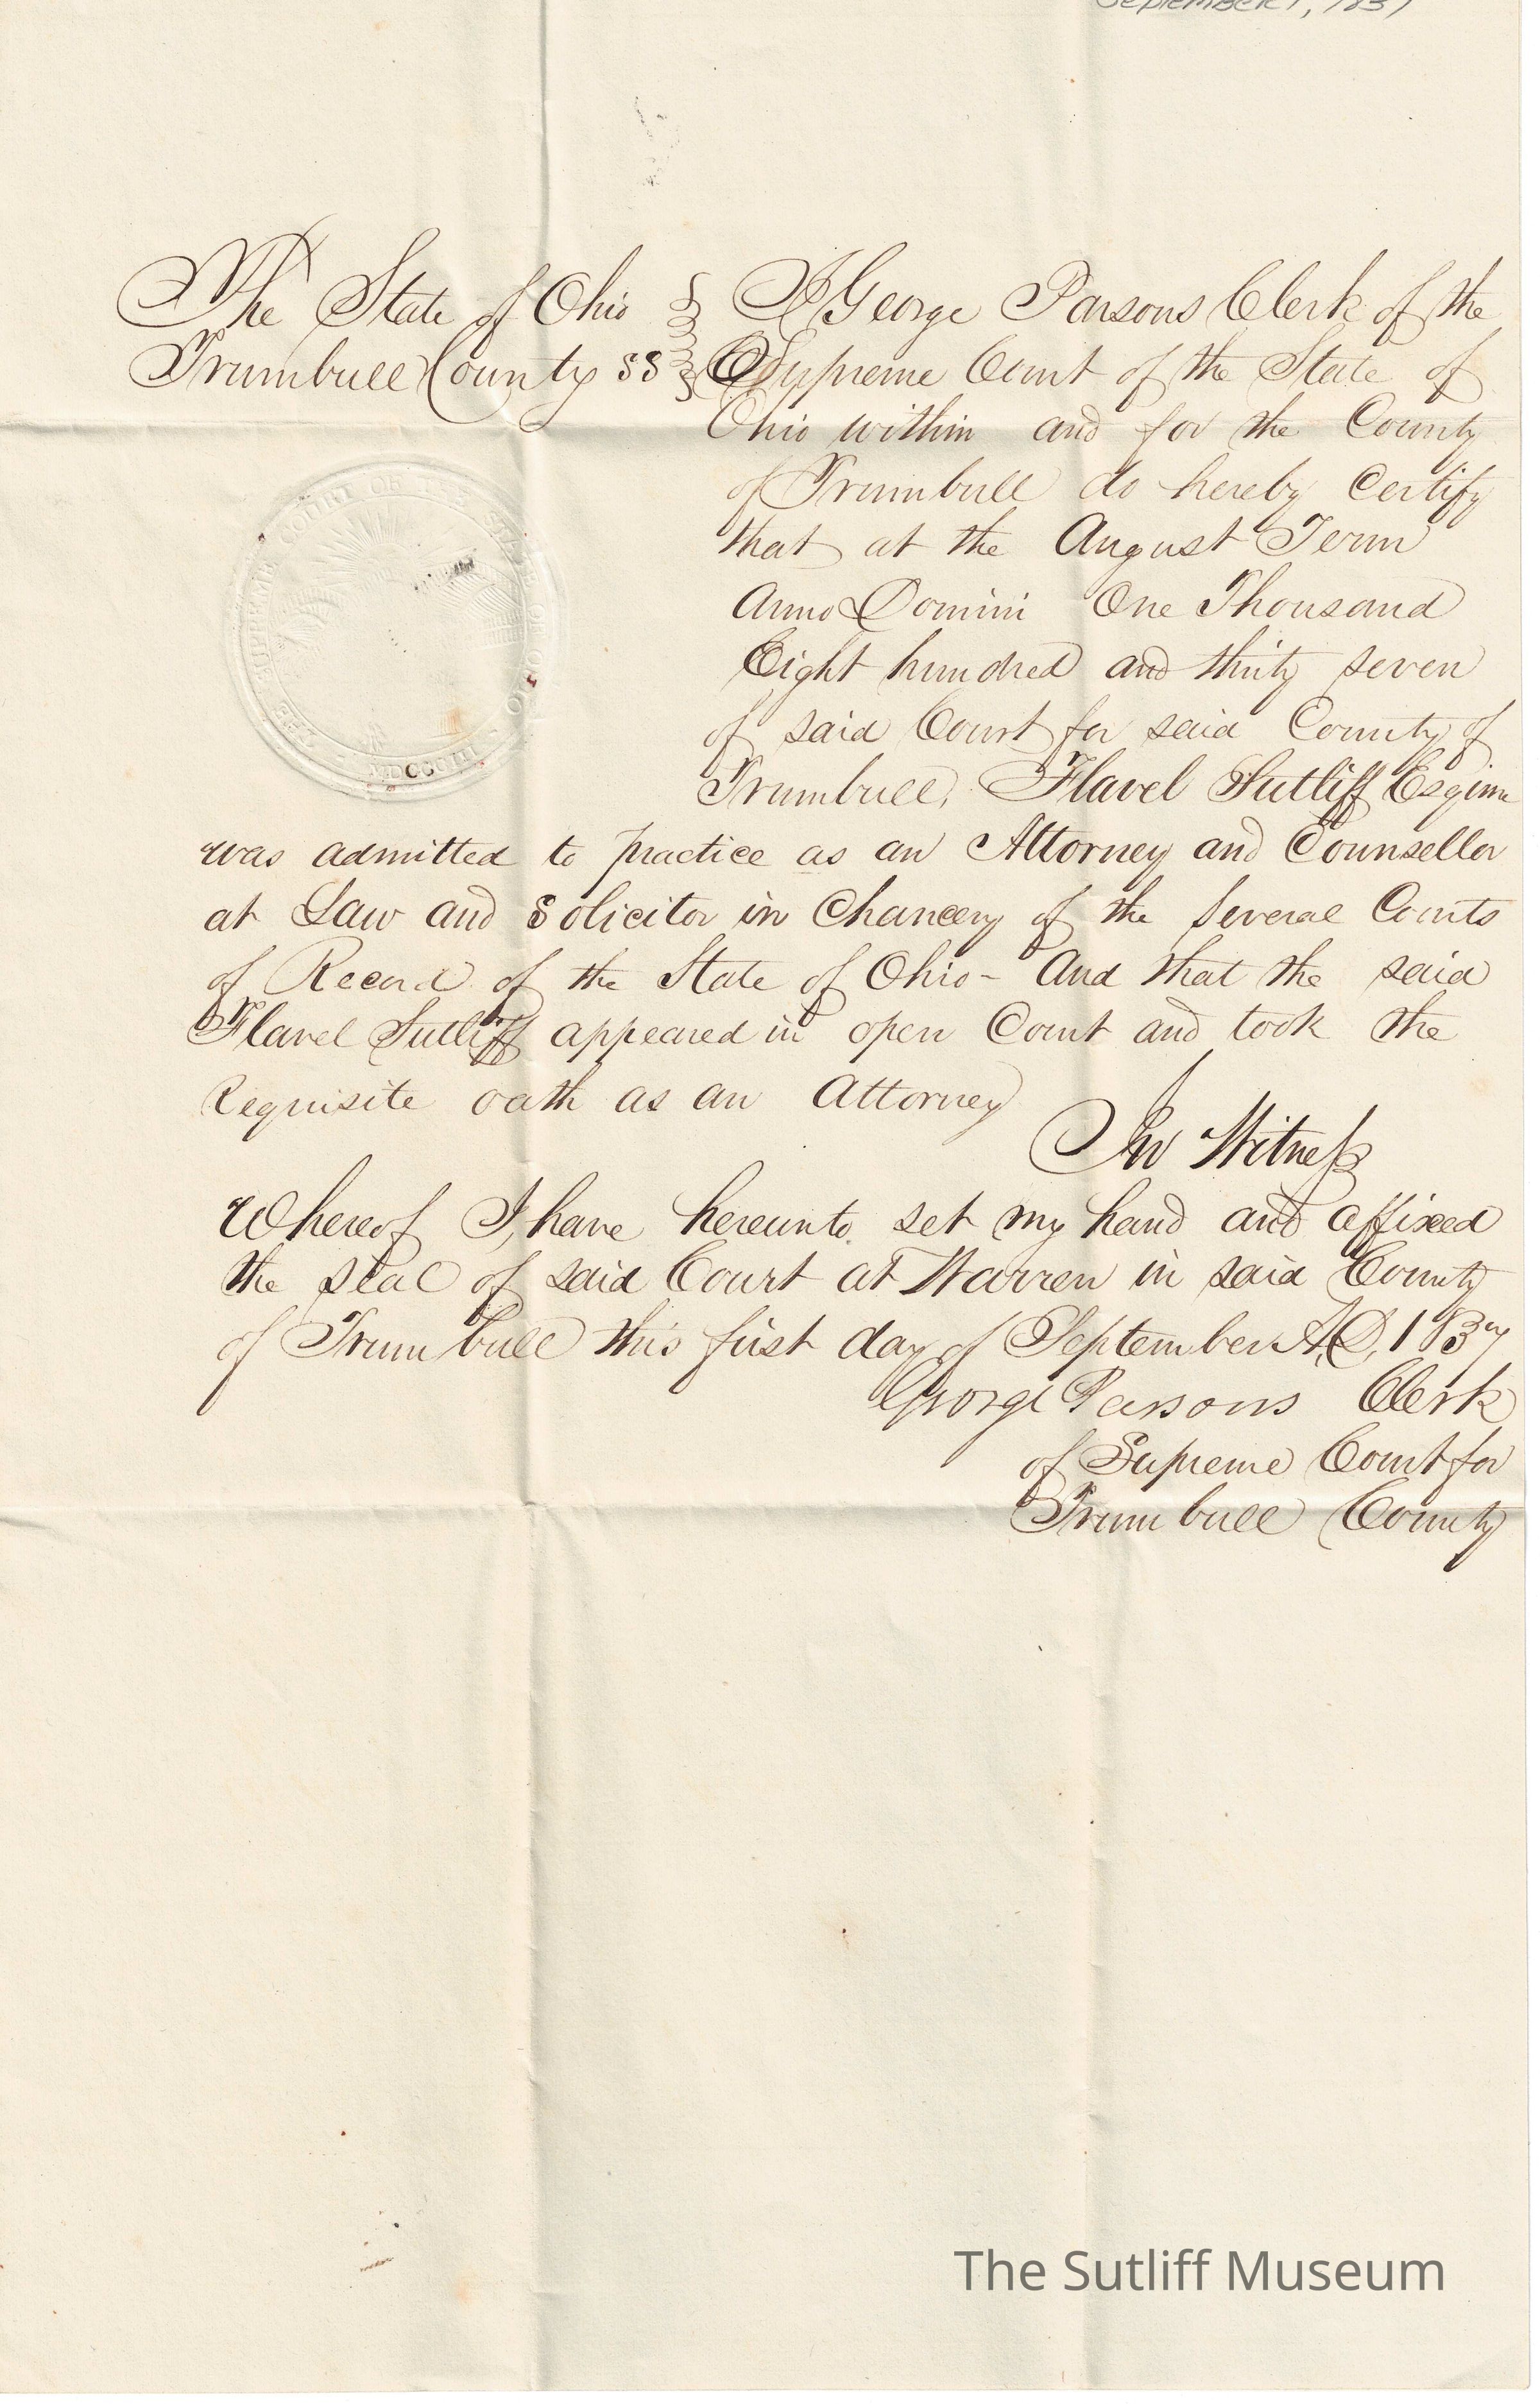 September 1, 1837
The State of Ohio § I George Parsons Clerk of the
Trumbull County SS § Supreme Court of the State of
Ohio within and for the County
of Trumbull do hereby Certify
that at the August Term
Anno Domini One Thousand
Eight hundred and thirty seven
of said Court for said County of
Trumbull, Flavel Sutliff Esquire
was admitted to practice as an Attorney and Counsellor
at Law and Solicitor in Chancery of the Several Courts
of Record of the State of Ohio - And that the said
Flavel Sutliff appeared in open Court and took the
Requisite oath as an Attorney
In Witness
Whereof I, have hereunto set my hand and affixed
the seal of said Court at Warren in said County
of Trumbull this first day of September A,D, 1837
George Parsons Clerk
of Supreme Court for
Trumbull County
SUPREME COURT OF THE STATE OF OHIO
MDCCCIII
The Sutliff Museum